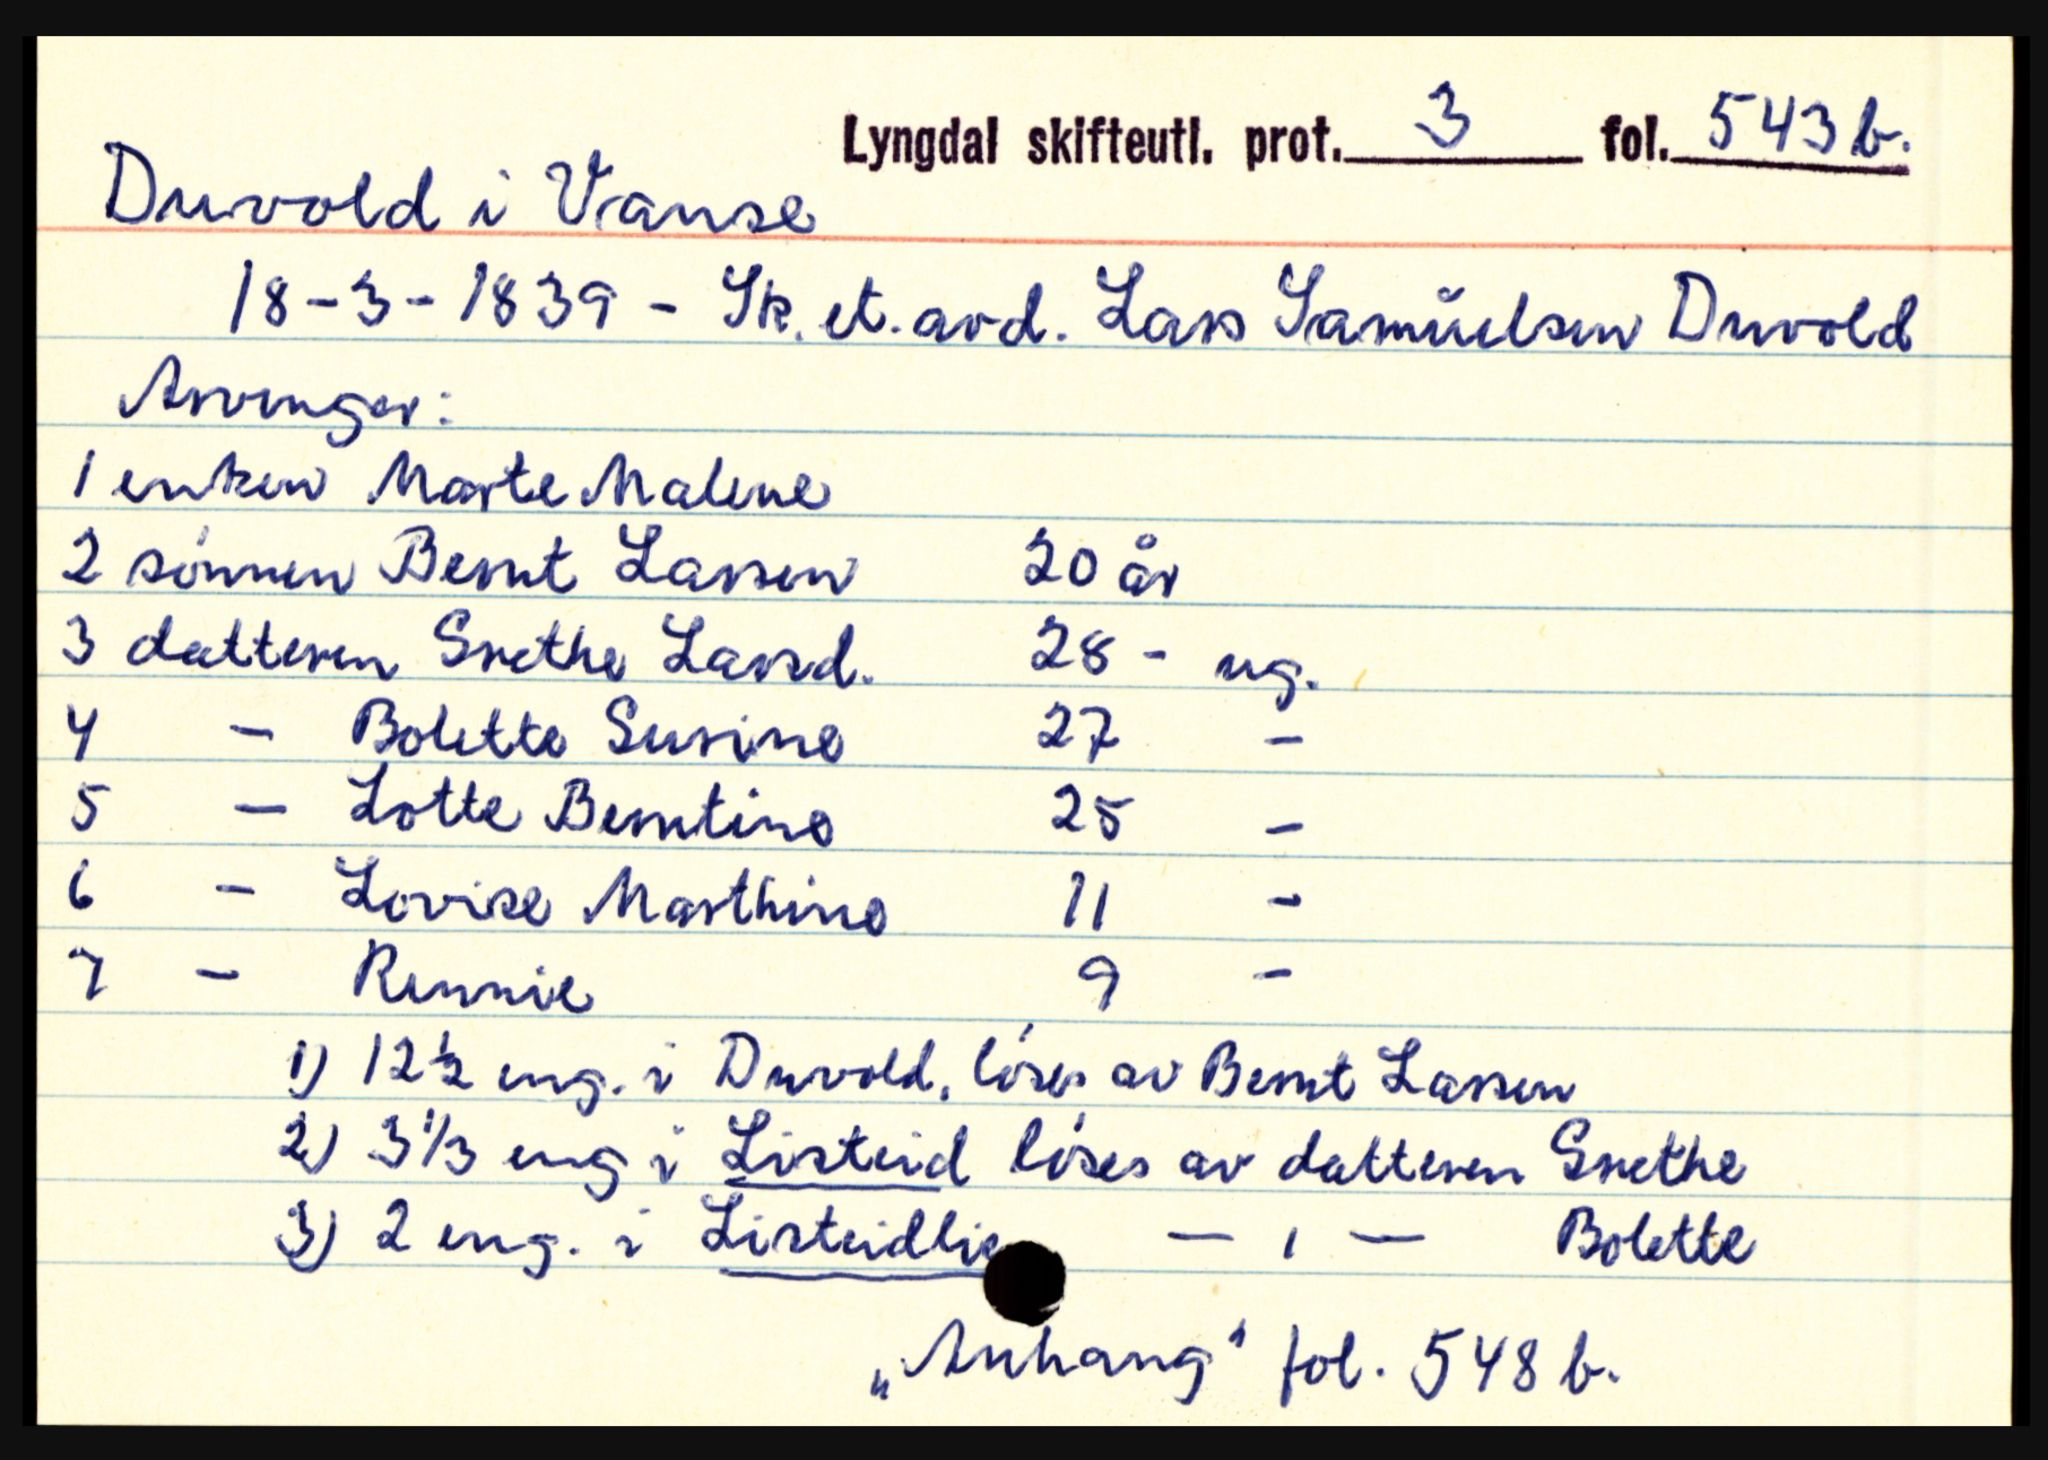 Lyngdal skifteutl. prot. 3 fol. 543 b.
Duvold i Vanse
18-3-1839 - Sk. et. avd. Lars Samŭelsen Duvold
Arvinger:
1 enken Marte Malene
2 sønnen Bernt Larsen 20 år
3 datteren Grethe Larsd. 28 - ug.
4 - Bolette Surine 27 -
5 - Lotte Berntine 25 -
6 - Lovise Marthine 11 -
7 - Rennie 9 -
1) 12½ eng. i Duvold, løses av Bernt Larsen
2) 3 1/3 eng i Listeid løses av datteren Grethe
3) 2 eng. i Listeidlie — ı — Bolette
„Anhang" fol. 548 b.